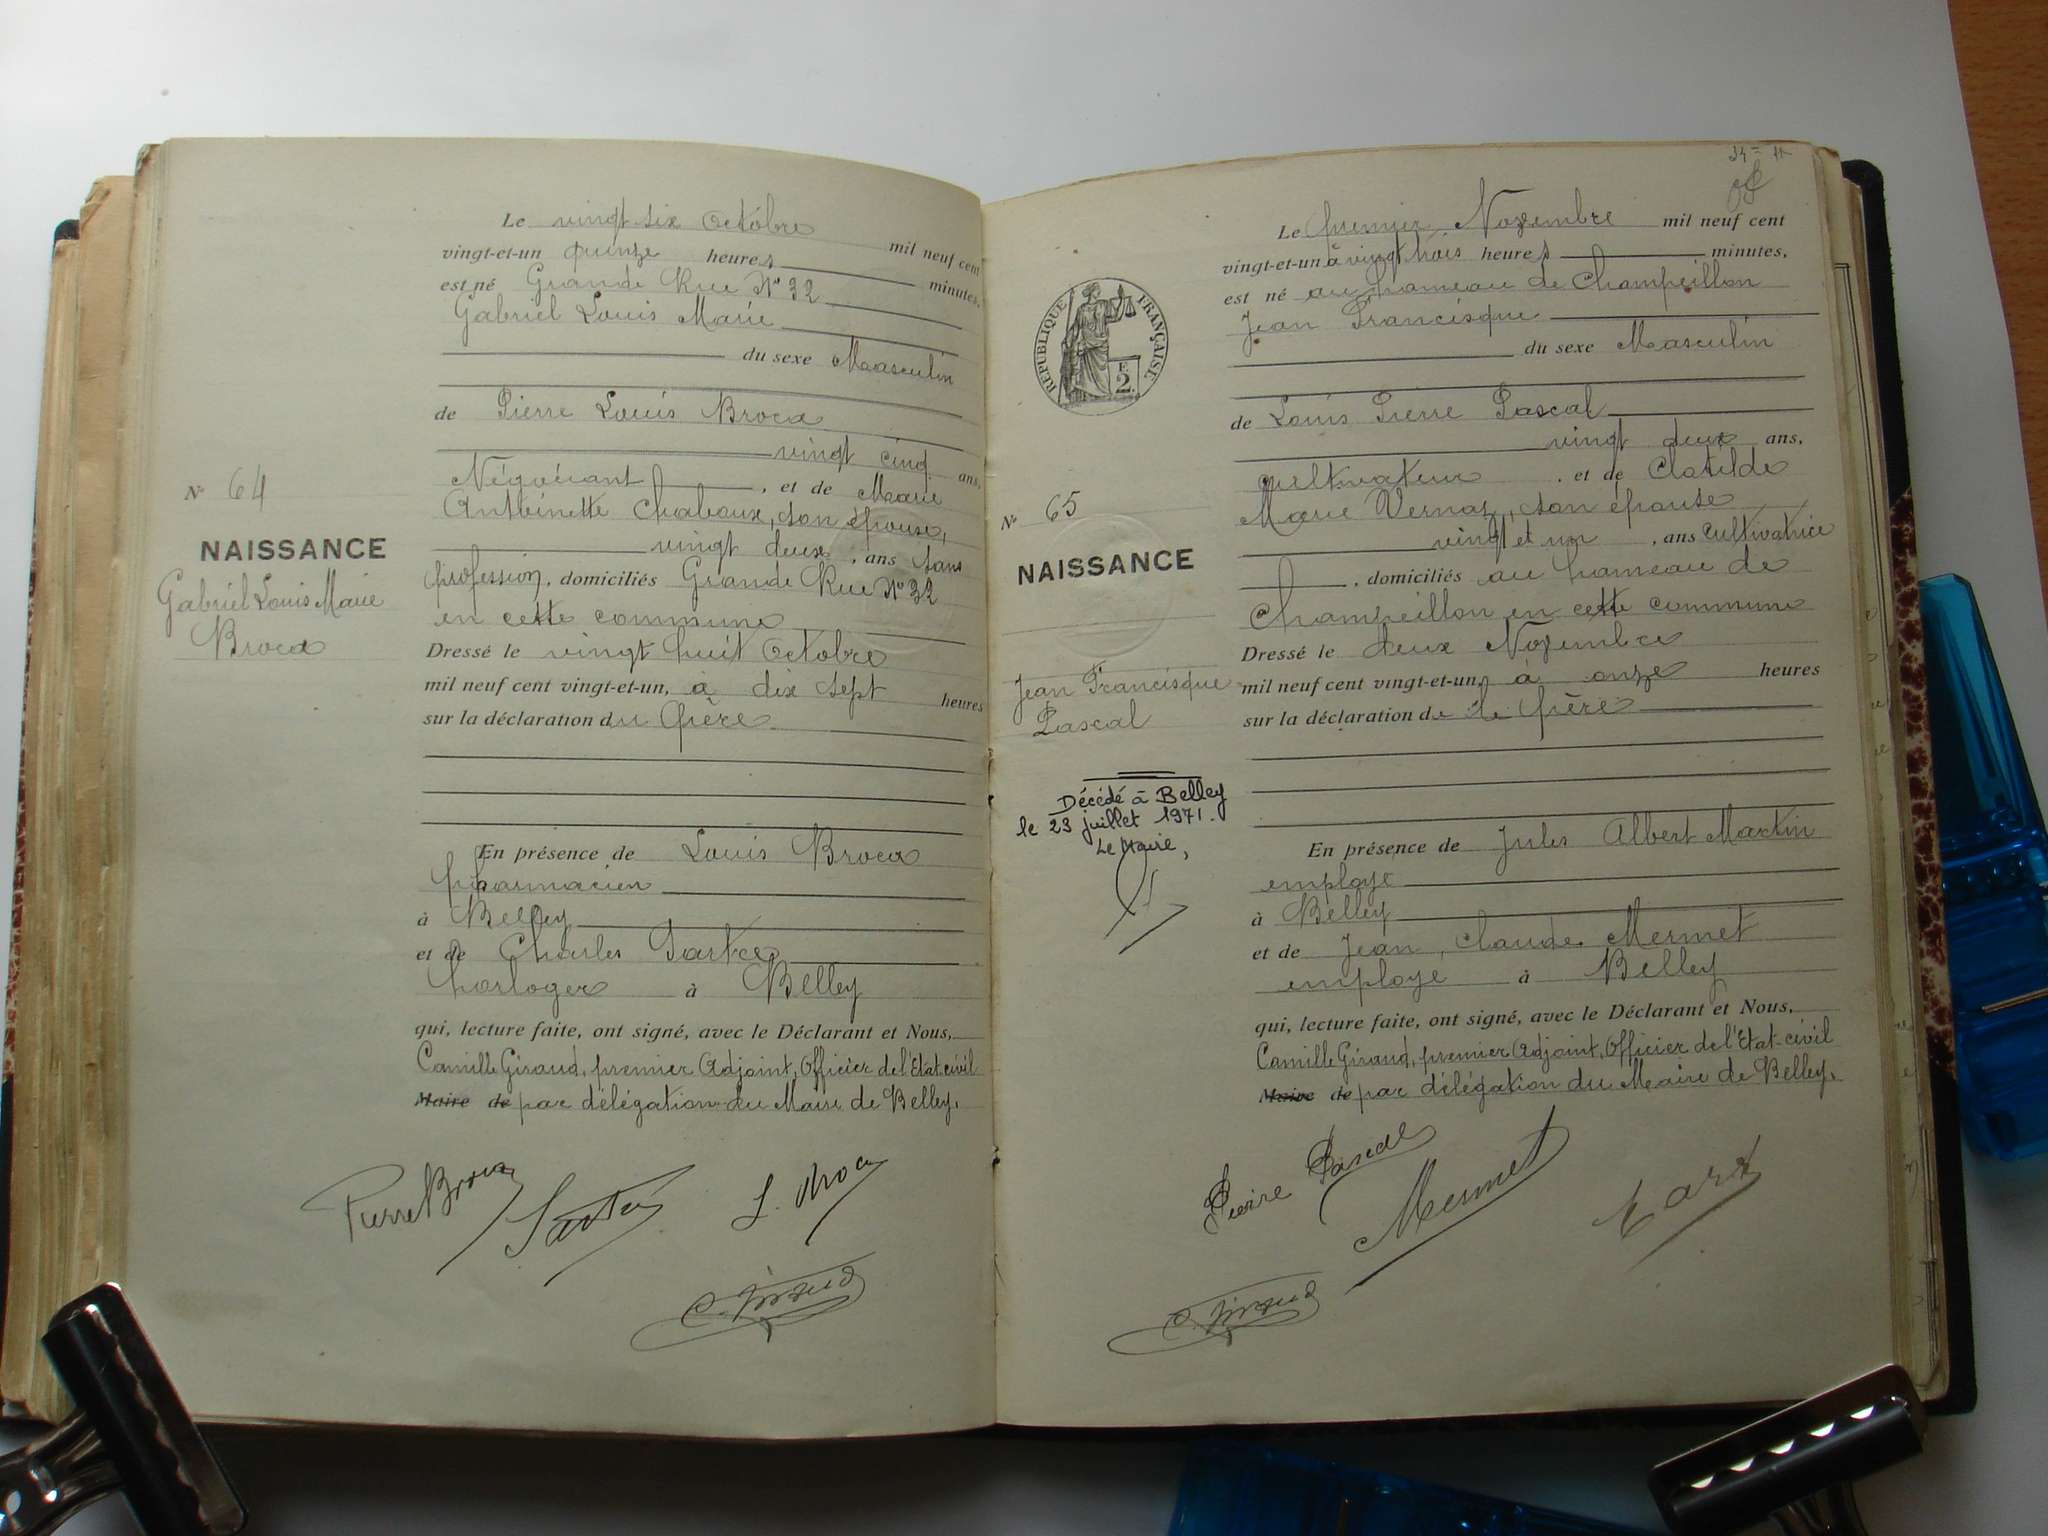 Le vingt six Octobre mil neuf cent
vingt-et-un quinze heures minutes,
est né Grande Rue N° 32
Gabriel Louis Marie
du sexe Masculin
de Pierre Louis Broca
vingt cinq ans,
Négociant, et de Marie
Antoinette Chaboux, son épouse,
vingt deux, ans sans
profession, domiciliés Grande Rue N° 32
en cette commune
Dressé le vingt huit Octobre
mil neuf cent vingt-et-un, à dix sept heures
sur la déclaration du Père
N° 64
NAISSANCE
Gabriel Louis Marie
Broca
En présence de Louis Broca
pharmacien
à Belley
et de Charles
horloger à Belley
qui, lecture faite, ont signé, avec le Déclarant et Nous,
Camille Giraud, premier Adjoint, Officier de l'Etat-civil
Maire de par délégation du Maire de Belley.
Pierre Broca
L. Broca
C. Giraud
Le premier Novembre mil neuf cent
vingt-et-un à vingt trois heures minutes,
est né au hameau de Champeillon
Jean Francisque
du sexe Masculin
de Louis Pierre Pascal
vingt deux ans,
cultivateur, et de Clotilde
Marie Vernaz, son épouse
vingt et un, ans cultivatrice
, domiciliés au hameau de
Champeillon en cette commune
Dressé le deux Novembre
mil neuf cent vingt-et-un, à onze heures
sur la déclaration de le Père
RÉPUBLIQUE FRANÇAISE
F.
2.
N° 65
NAISSANCE
Jean Francisque
Pascal
Décédé à Belley
le 23 juillet 1971.
Le Maire,
En présence de Jules Albert Martin
employe
à Belley
et de Jean, Claude Mermet
employe à Belley
qui, lecture faite, ont signé, avec le Déclarant et Nous,
Camille Giraud, premier Adjoint, Officier de l'Etat-civil
Maire de par délégation du Maire de Belley.
Pierre Pascal
Mermet
C. Giraud